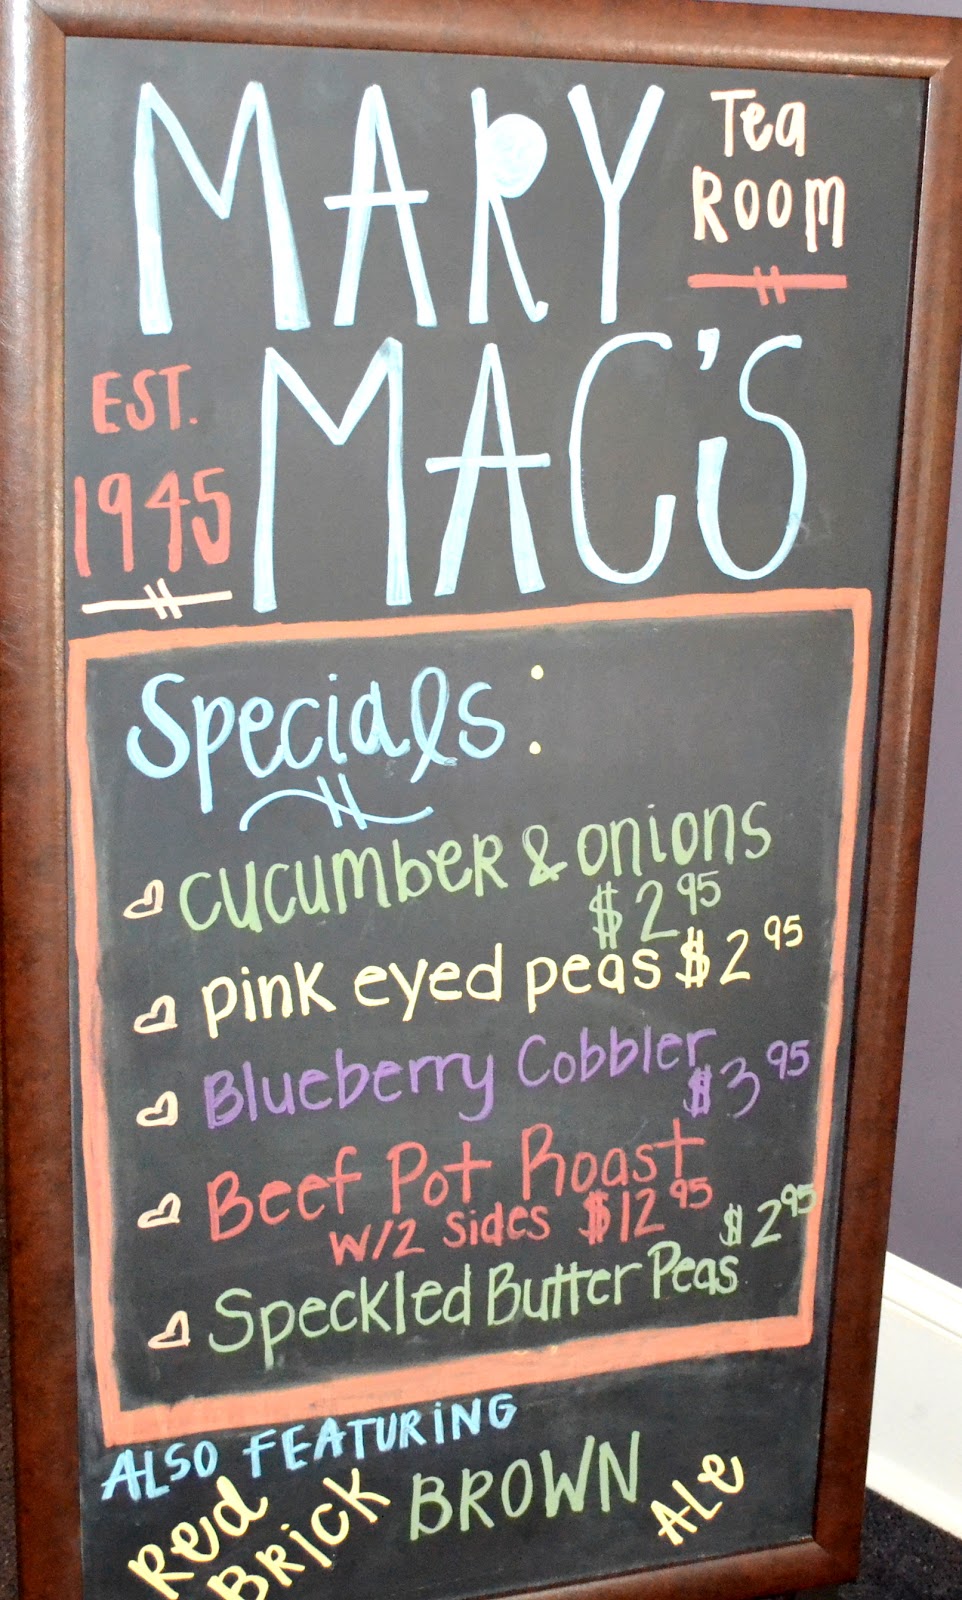 MARY Tea
ROOM
EST. MAC'S
1945
Specials:
CUCUMBER & ONIONS
$2.95
PINK EYED PEAS $2.95
Blueberry Cobbler
$3.95
Beef Pot Roast
W/2 Sides $12.95
Speckled Butter Peas $2.95
ALSO FEATURING
Red BRICK BROWN ALE